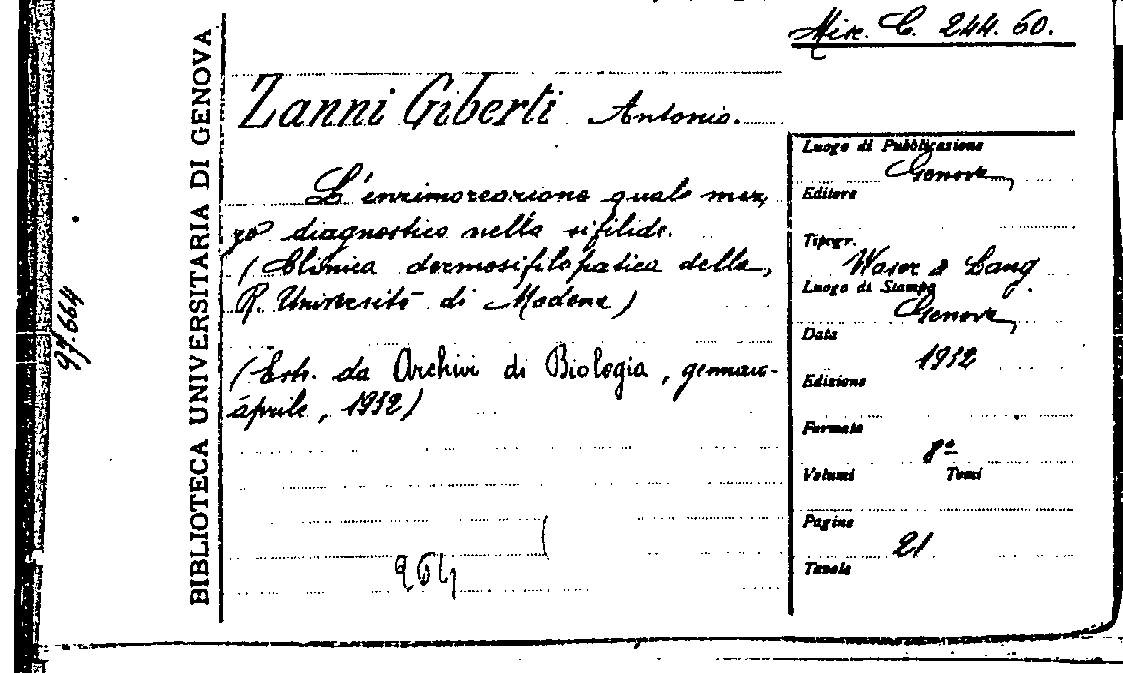 Misc. C. 244. 60.
BIBLIOTECA UNIVERSITARIA DI GENOVA
97.664
Zanni Giberti Antonio.
L'enzimoreazione quale mez,
zo diagnostico nella sifilide.
(Clinica dermosifilopatica della,
R. Università di Modena)
(Estr. da Archivi di Biologia, gennaio-
aprile, 1932)
264
Luogo di Pubblicazione
Genova
Editore
Tipogr.
Waser & Lang
Luogo di Stampa
Genova
Data
1932
Edizione
Formato
8°
Volumi Tomi
Pagine
21
Tavole